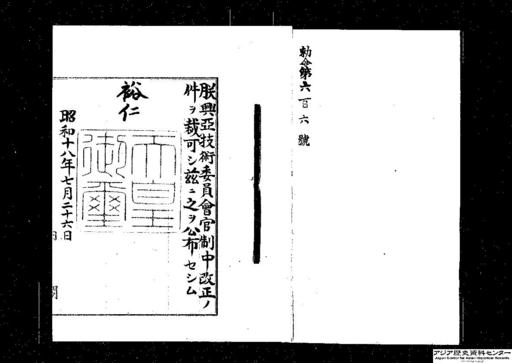 勅令第六百六號
朕興亞技術委員會官制中改正ノ
件ヲ裁可シ茲ニ之ヲ公布セシム
裕仁
天皇御璽
昭和十八年七月二十六日
アジア歴史資料センター
Japan Center for Asian Historical Records